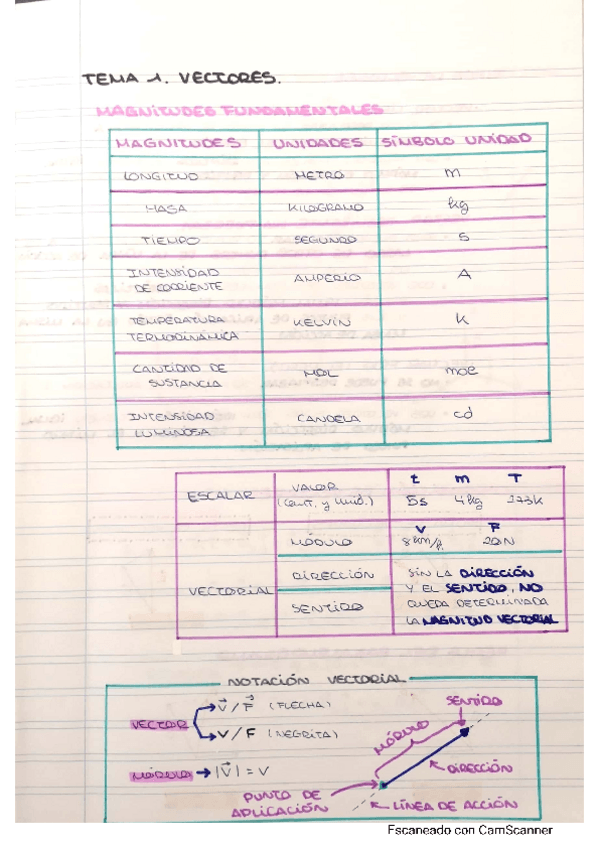 TEMA 1. VECTORES.
MAGNITUDES FUNDAMENTALES
MAGNITUDES UNIDADES SÍMBOLO UNIDAD
LONGITUD METRO m
MASA KILOGRAMO kg
TIEMPO SEGUNDO s
INTENSIDAD DE CORRIENTE AMPERIO A
TEMPERATURA TERMODINÁMICA KELVIN K
CANTIDAD DE SUSTANCIA MOL mol
INTENSIDAD LUMINOSA CANDELA cd
ESCALAR VALOR (cant. y unid.) t m T
5s 4kg 273K
VECTORIAL MÓDULO V F
8km/h 20N
DIRECCIÓN
SENTIDO
SIN LA DIRECCIÓN
Y EL SENTIDO, NO
QUEDA DETERMINADA
LA MAGNITUD VECTORIAL
NOTACIÓN VECTORIAL
VECTOR
V⃗ / F⃗ (FLECHA)
V / F (NEGRITA)
MÓDULO → |V⃗| = V
SENTIDO
MÓDULO
DIRECCIÓN
PUNTO DE
APLICACIÓN
LÍNEA DE ACCIÓN
Escaneado con CamScanner